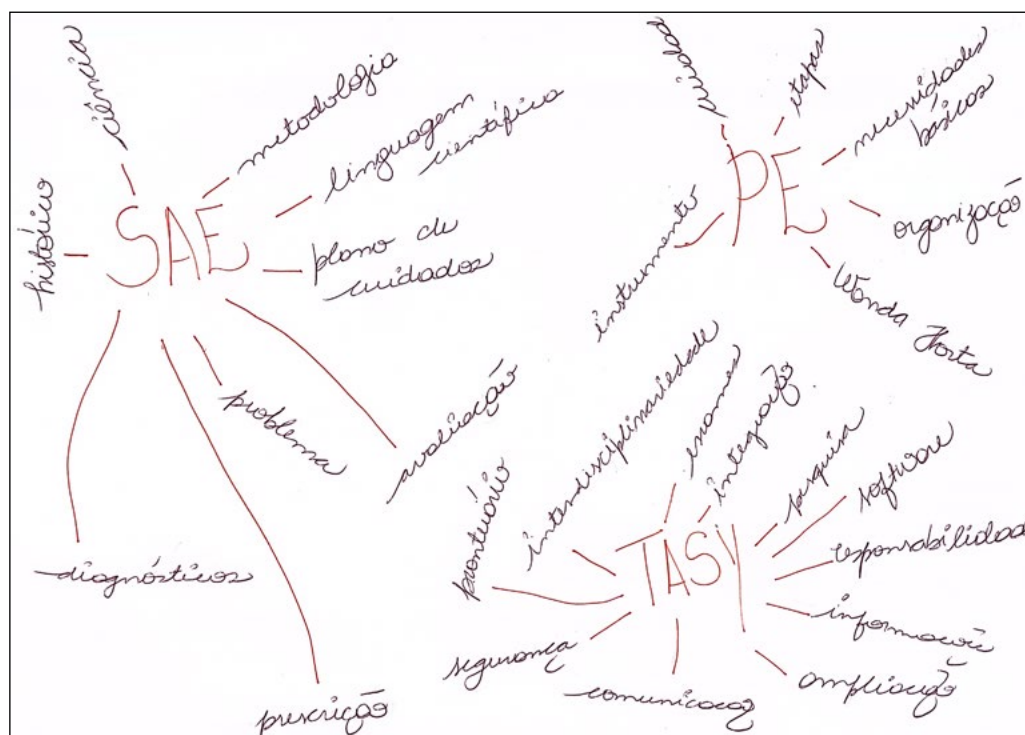 SAE
ciência
metodologia
linguagem
científica
plano de
cuidados
avaliação
problema
prescrição
diagnósticos
histórico
PE
cuidado
etapas
necessidades
básicas
organização
Wanda Horta
instrumento
TASY
prontuário
interdisciplinariedade
exames
integração
pesquisa
software
responsabilidad
informaçõe
ampliação
comunicacao
segurança